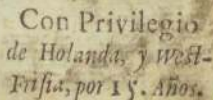 Con Privilegio
de Holanda, y West-
Frisia, por 15. Años.